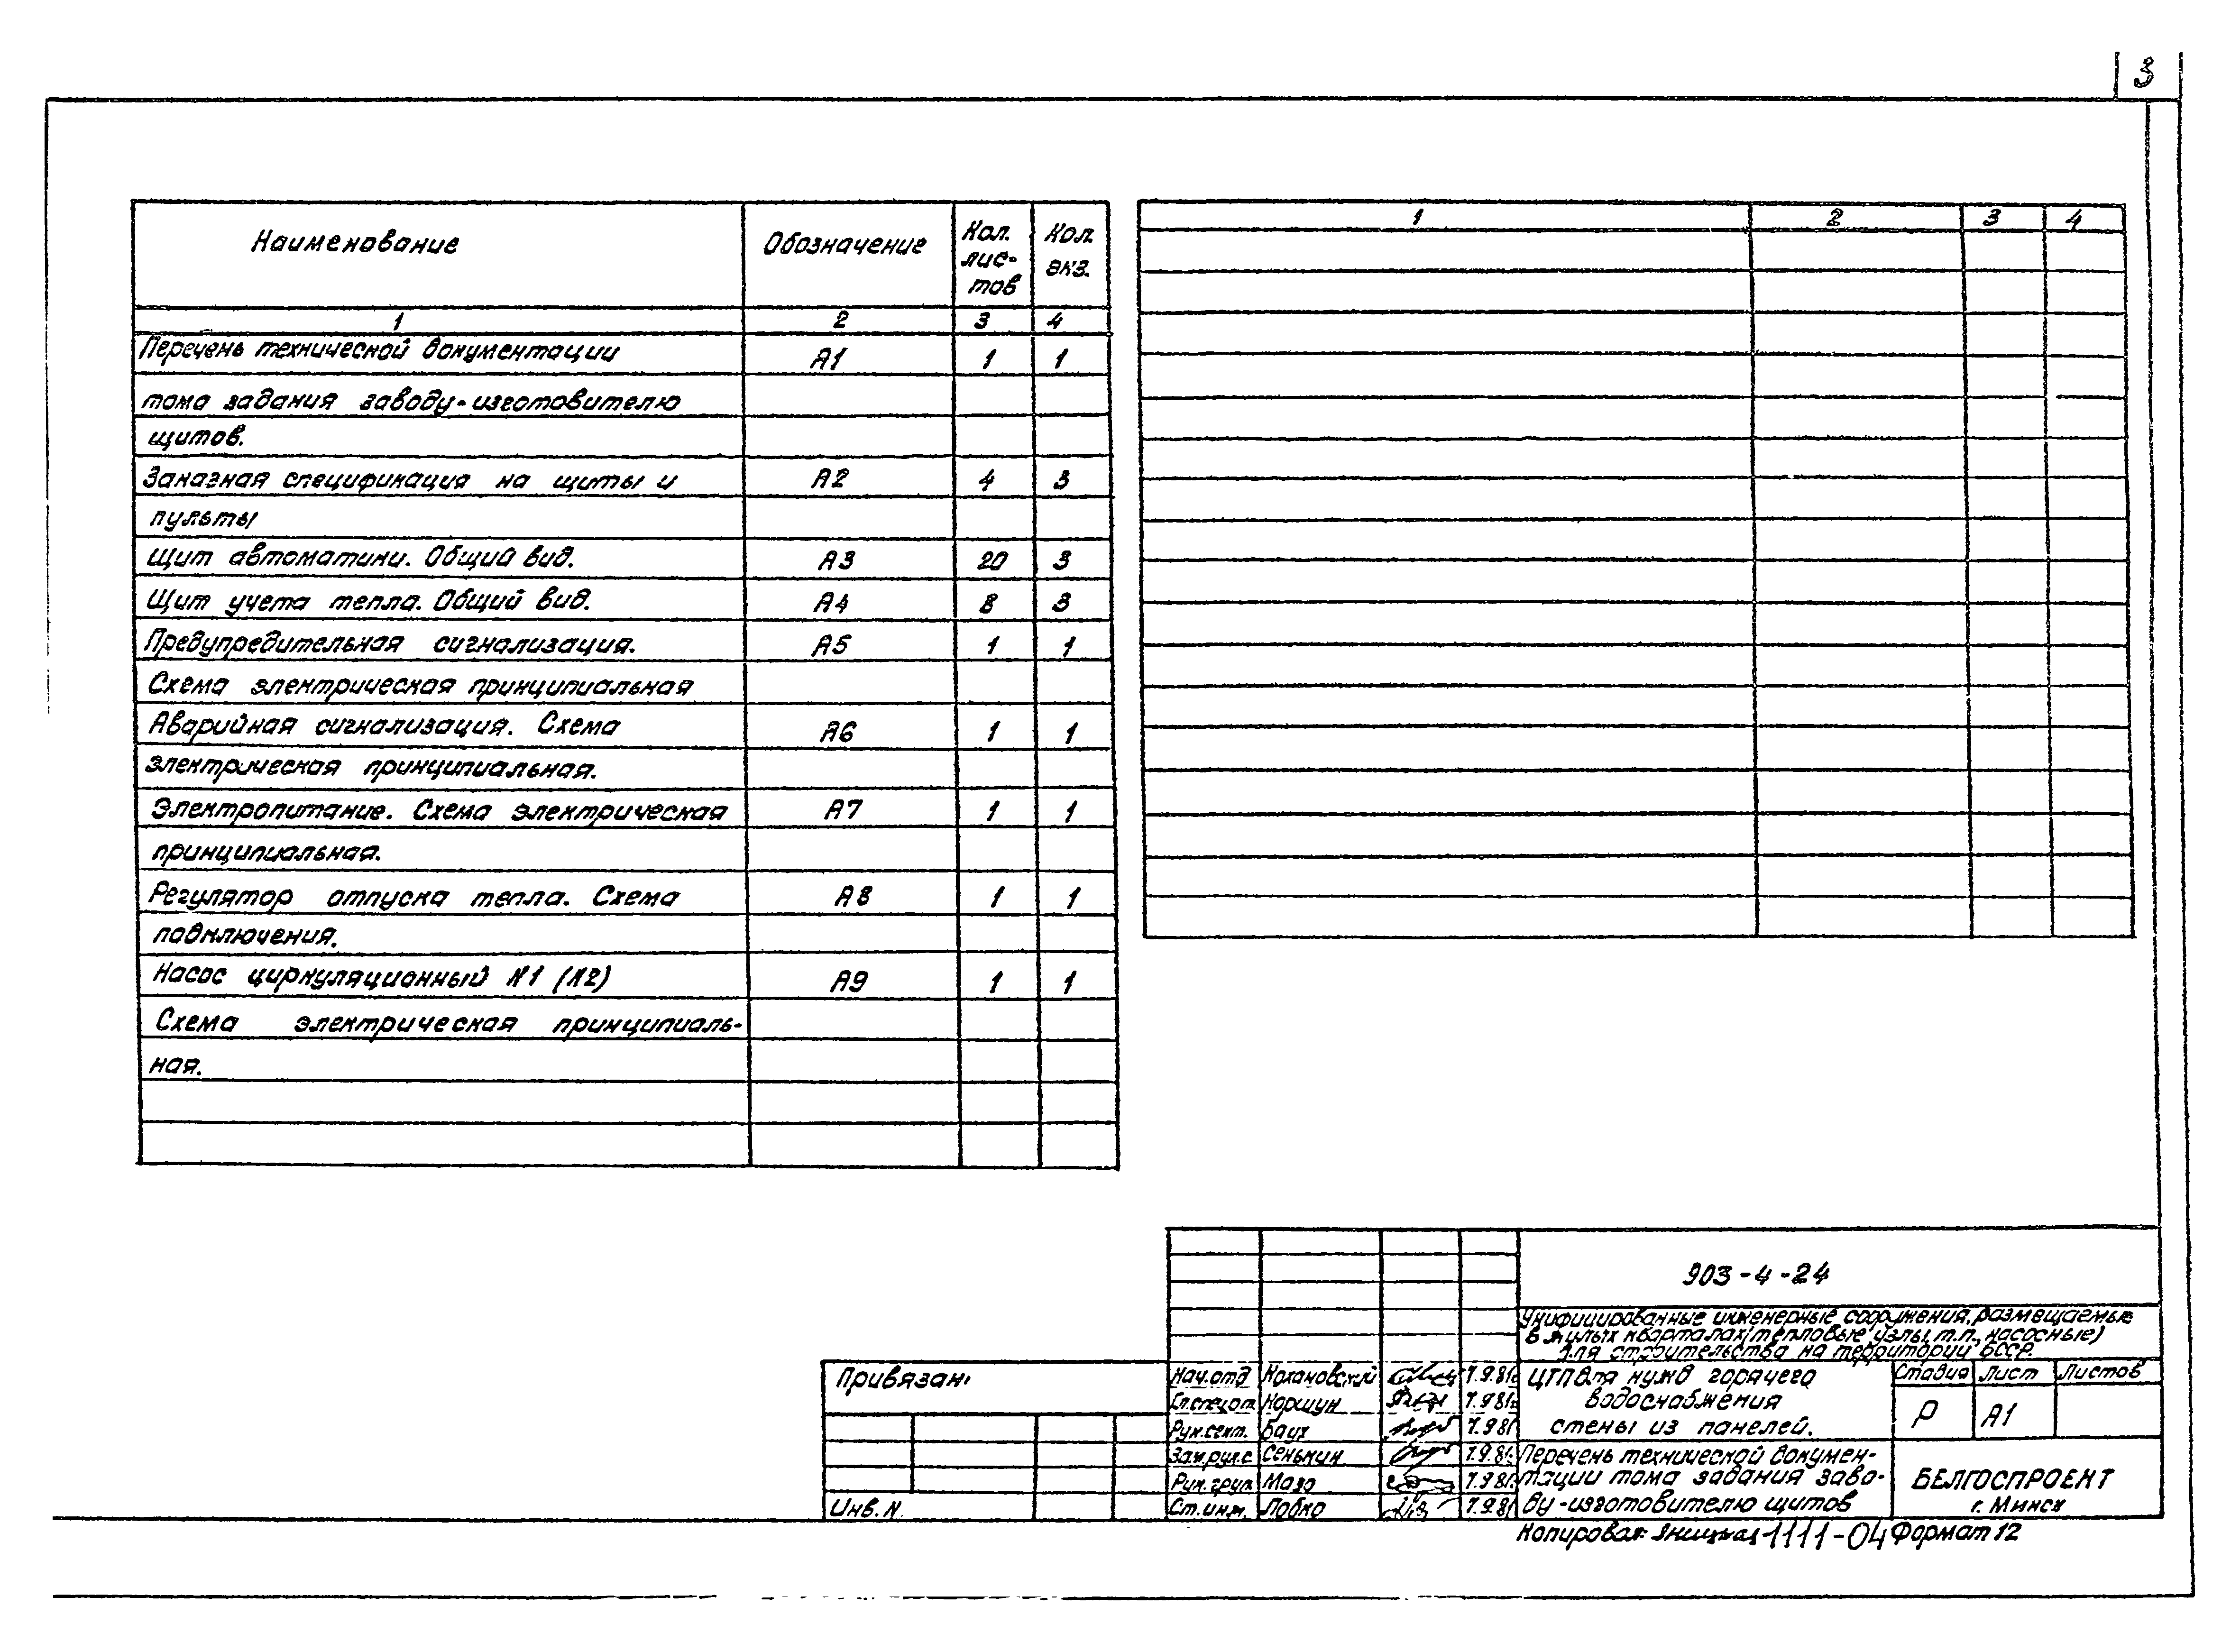 3
Наименование Обозначение Кол. лис-тов Кол. экз.
1 2 3 4
Перечень технической документации А1 1 1
тома задания заводу-изготовителю
щитов.
Заказная спецификация на щиты и А2 4 3
пульты
Щит автоматики. Общий вид. А3 20 3
Щит учета тепла. Общий вид. А4 8 3
Предупредительная сигнализация. А5 1 1
Схема электрическая принципиальная
Аварийная сигнализация. Схема А6 1 1
электрическая принципиальная.
Электропитание. Схема электрическая А7 1 1
принципиальная.
Регулятор отпуска тепла. Схема А8 1 1
подключения.
Насос циркуляционный №1 (№2) А9 1 1
Схема электрическая принципиаль-
ная.
1 2 3 4
903-4-24
Унифицированные инженерные сооружения, размещаемые
в жилых кварталах (тепловые узлы, т.п., насосные)
для строительства на территории БССР.
Привязан:
Инв. N.
Нач.отд Кохановский 7.9.81г.
Гл.спец.от Коршун 7.9.81г.
Рук.сект. Баих 7.9.81г
Зам.рук.с Сенькин 7.9.81г.
Рук.груп Мазо 7.9.81г.
Ст.инж. Лобко 7.9.81г
ЦТП для нужд горячего
водоснабжения
стены из панелей.
Стадия Лист Листов
Р А1
Перечень технической докумен-
тации тома задания заво-
ду-изготовителю щитов
БЕЛГОСПРОЕКТ
г. Минск
Копировал: 1111-04 Формат 12